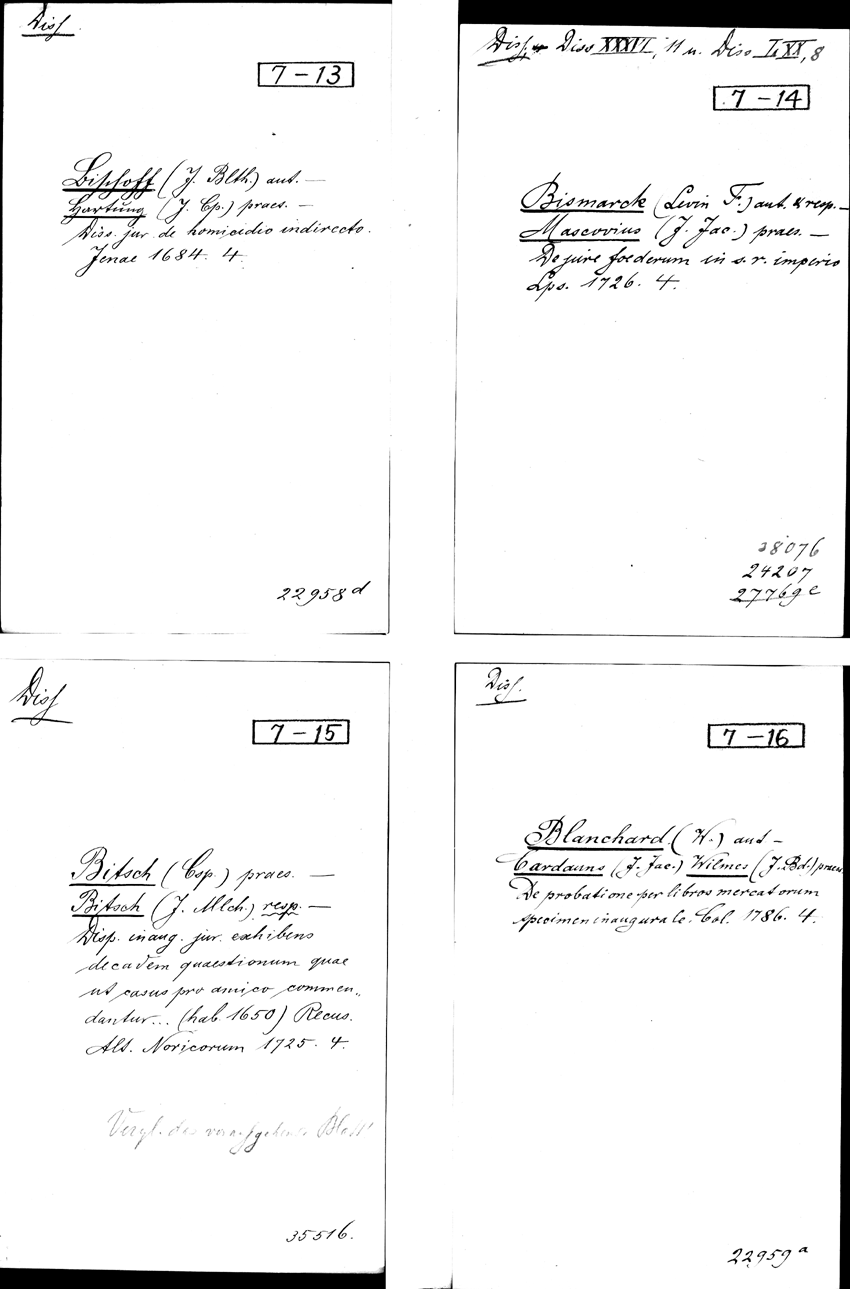 Diss.
7-13
Bischoff (J. Blth.) aut. —
Hartung (J. Cp.) praes. —
Diss. jur. de homicidio indirecto.
Jenae 1684. 4.
22958 d
Diss. Diss XXXVI, 11 u. Diss LXX, 8
7-14
Bismarck (Levin F.) aut. & resp. —
Mascovius (J. Jac.) praes. —
De jure foederum in s. r. imperio
Lps. 1726. 4.
28076
24207
27769 c
Diss
7-15
Bitsch (Csp.) praes. —
Bitsch (J. Mlch.) resp. —
Disp. inaug. jur. exhibens
decadem quaestionum quae
ut casus pro amico commen„
dantur... (hab. 1650) Recus.
Alt. Noricorum 1725. 4.
Vergl. das vorhergehende Blatt
35516.
Diss.
7-16
Blanchard (W.) aut —
Cardauns (J. Jac.) Wilmes (J. Bd.) praes.
De probatione per libros mercatorum
specimen inaugurale. Col. 1786. 4.
22959 a